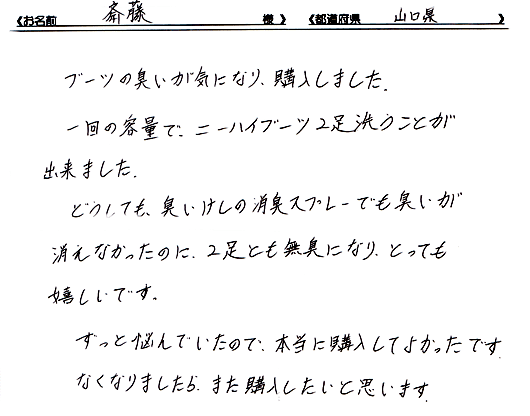 《お名前 斎藤 様》 《都道府県 山口県 》
ブーツの臭いが気になり、購入しました。
一回の容量で、ニーハイブーツ2足洗うことが
出来ました。
どうしても、臭いけしの消臭スプレーでも臭いが
消えなかったのに、2足とも無臭になり、とっても
嬉しいです。
ずっと悩んでいたので、本当に購入してよかったです
なくなりましたら、また購入したいと思います